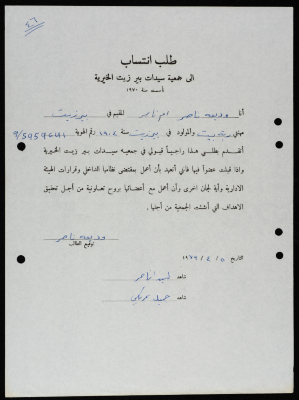 ٤٦
طلب انتساب
الى جمعية سيدات بير زيت الخيرية
أسست سنة ١٩٧٠
أنا وديعه ناصر ام ناصر المقيم في بيرزيت
مهنتي ربة بيت والمولود في بيرزيت سنة ١٩٠٨ رقم الهوية
أتقدم بطلبي هذا راجياً قبولي في جمعية سيدات بير زيت الخيرية
واذا قبلت عضواً فيها فاني أتعهد بأن أعمل بمقتضى نظامها الداخلي وقرارات الهيئة
الادارية وأية لجان اخرى وأن أعمل مع أعضائها بروح تعاونية من أجل تحقيق
الاهداف التي أنشئت الجمعية من أجلها .
وديعه ناصر
توقيع الطالب
التاريخ ٥ / ٤ / ١٩٧٩
شاهد ناصر
شاهد